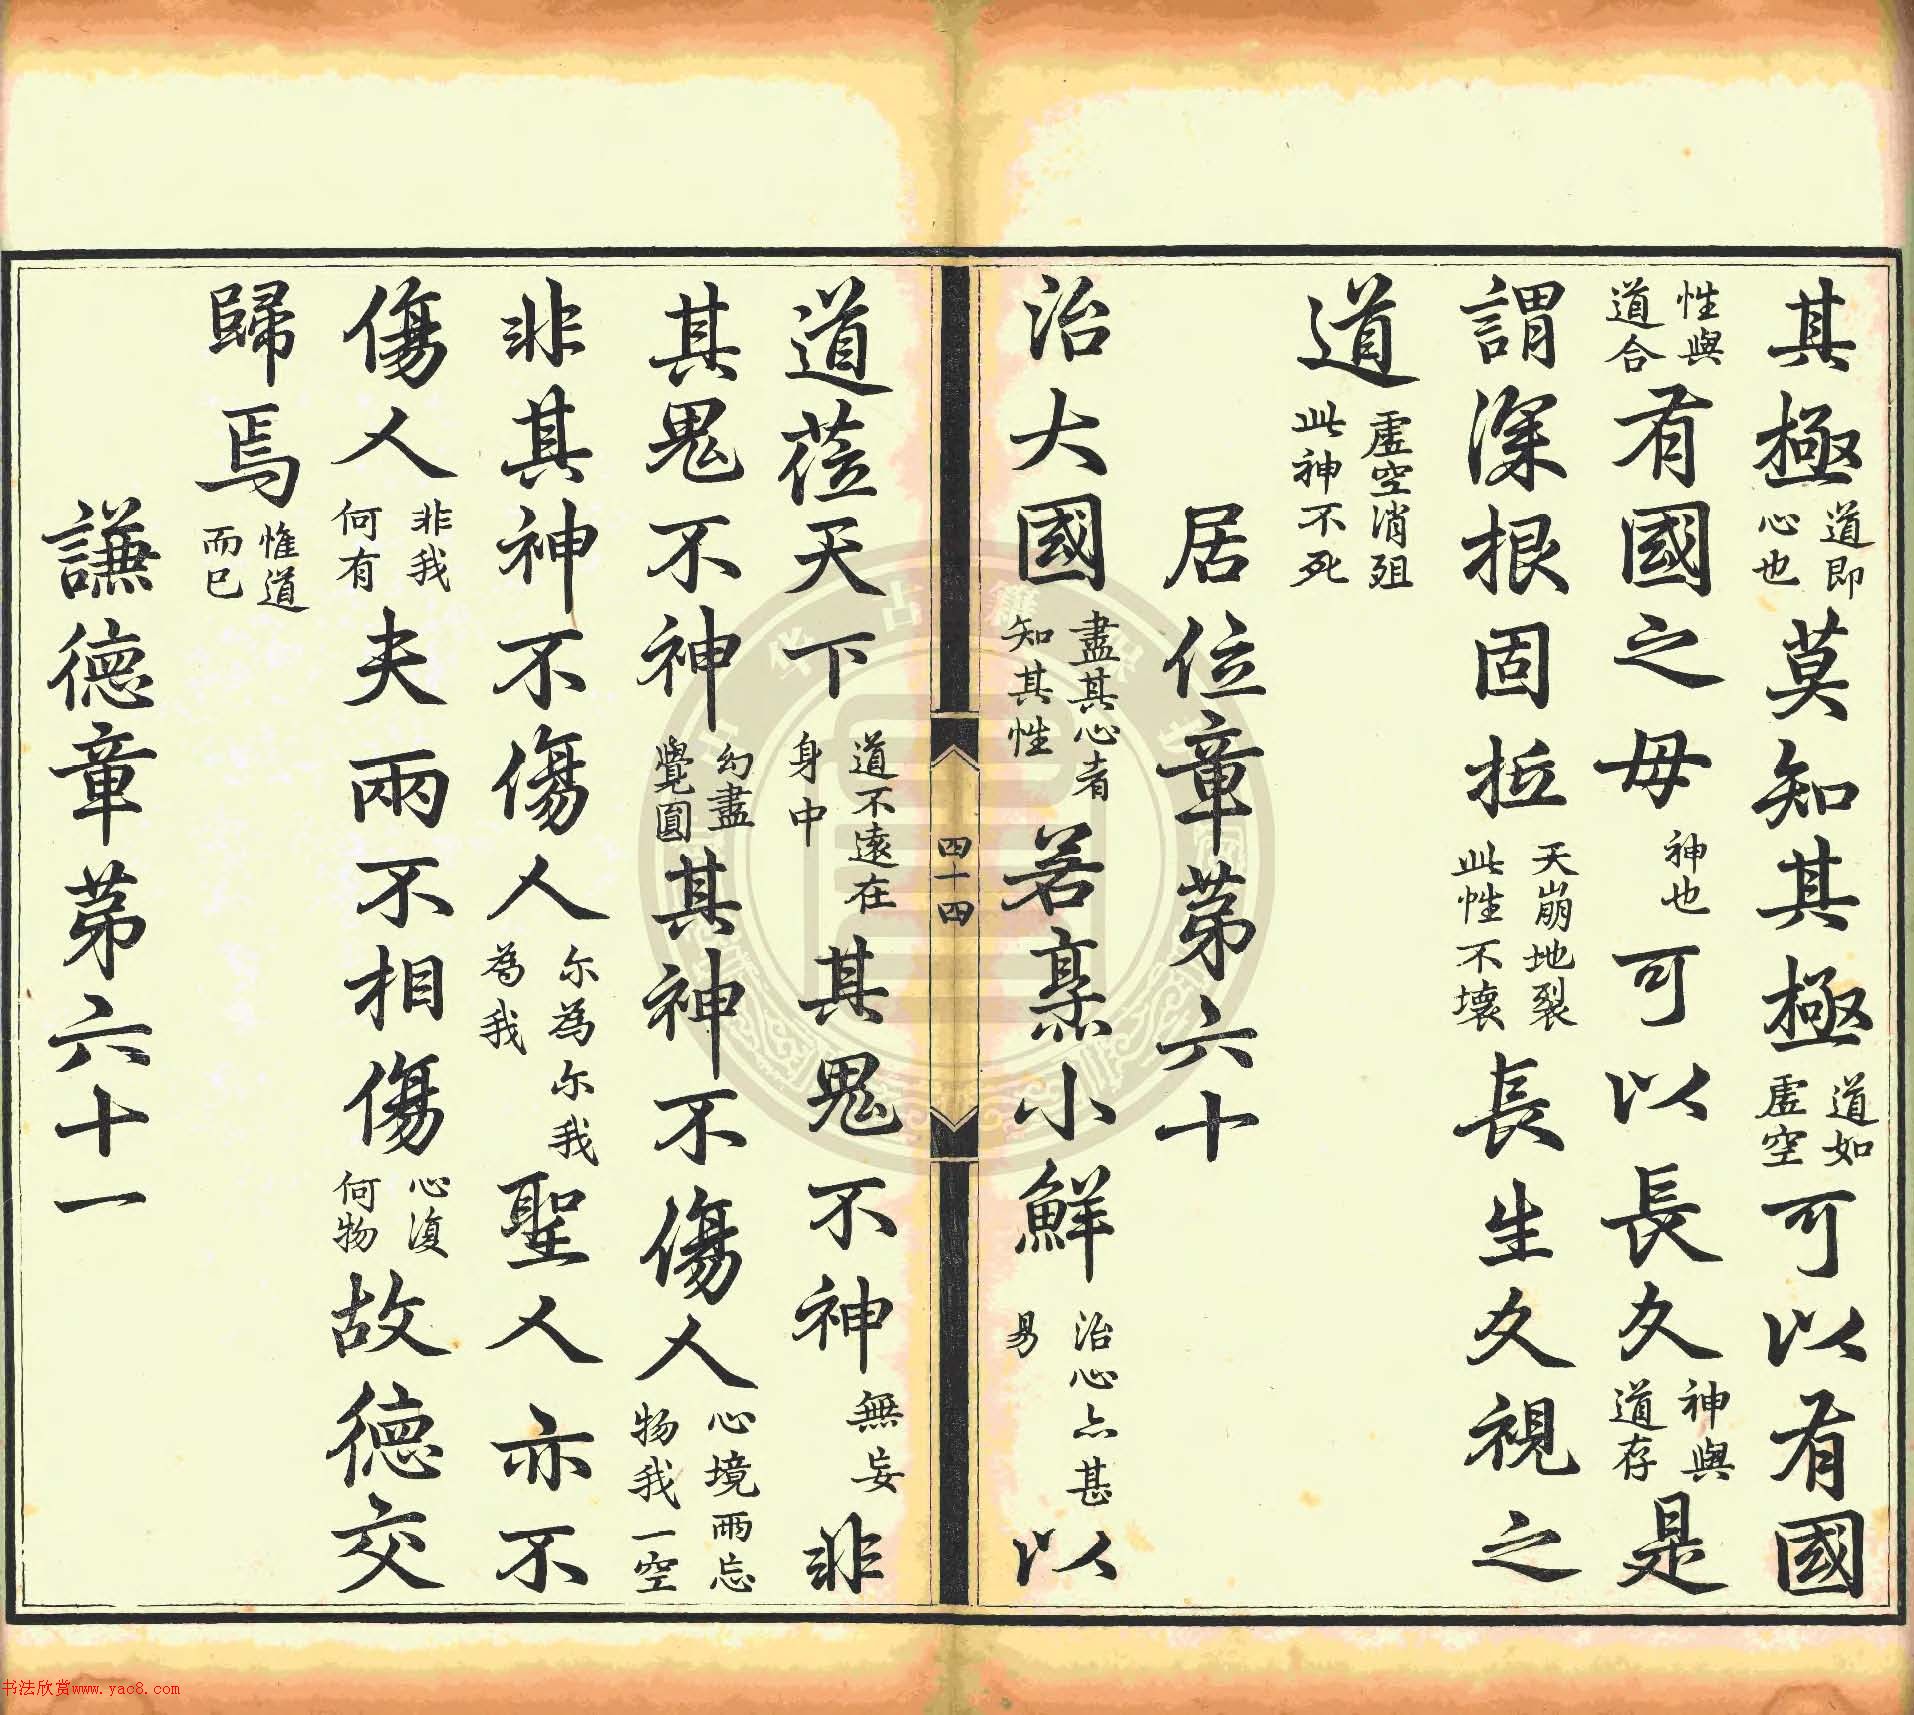 其極道即心也莫知其極道如虛空可以有國
性與道合有國之母神也可以長久神與道存是
謂深根固柢天崩地裂此性不壞長生久視之
道虛空消殂此神不死
居位章第六十
治大國盡其心者知其性若烹小鮮治心亦甚易以
四十四
道蒞天下道不遠在身中其鬼不神無妄非
其鬼不神幻盡覺圓其神不傷人心境兩忘物我一空
非其神不傷人尔為尔我為我聖人亦不
傷人非我何有夫兩不相傷心復何物故德交
歸焉惟道而已
謙德章第六十一
书法欣赏www.yac8.com